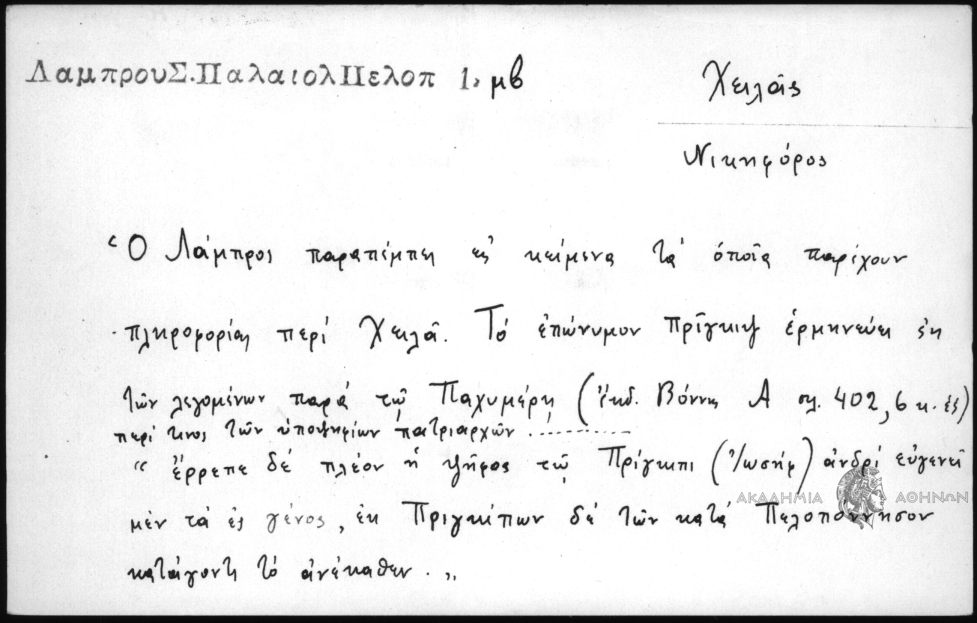 ΛαμπρουΣ.ΠαλαιολΠελοπ 1, μβ
Χειλᾶς
Νικηφόρος
"Ὁ Λάμπρος παραπέμπει εἰς κείμενα τά ὁποῖα παρέχουν
πληροφορίας περί Χειλᾶ. Τό ἐπώνυμον Πρίγκιψ ἑρμηνεύει ἐκ
τῶν λεγομένων παρά τῷ Παχυμέρῃ (ἔκδ. Βόννης Α σελ. 402, 6 κ. ἑξ)
περί τινος τῶν ὑποψηφίων πατριαρχῶν ...........
" ἔρρεπε δέ πλέον ἡ ψῆφος τῷ Πρίγκιπι (Ἰωσήφ) ἀνδρί εὐγενεῖ
ΑΚΑΔΗΜΙΑ ΑΘΗΝΩΝ
μέν τά ἐς γένος, ἐκ Πριγκίπων δέ τῶν κατά Πελοπόννησον
κατάγοντι τό ἀνέκαθεν . "